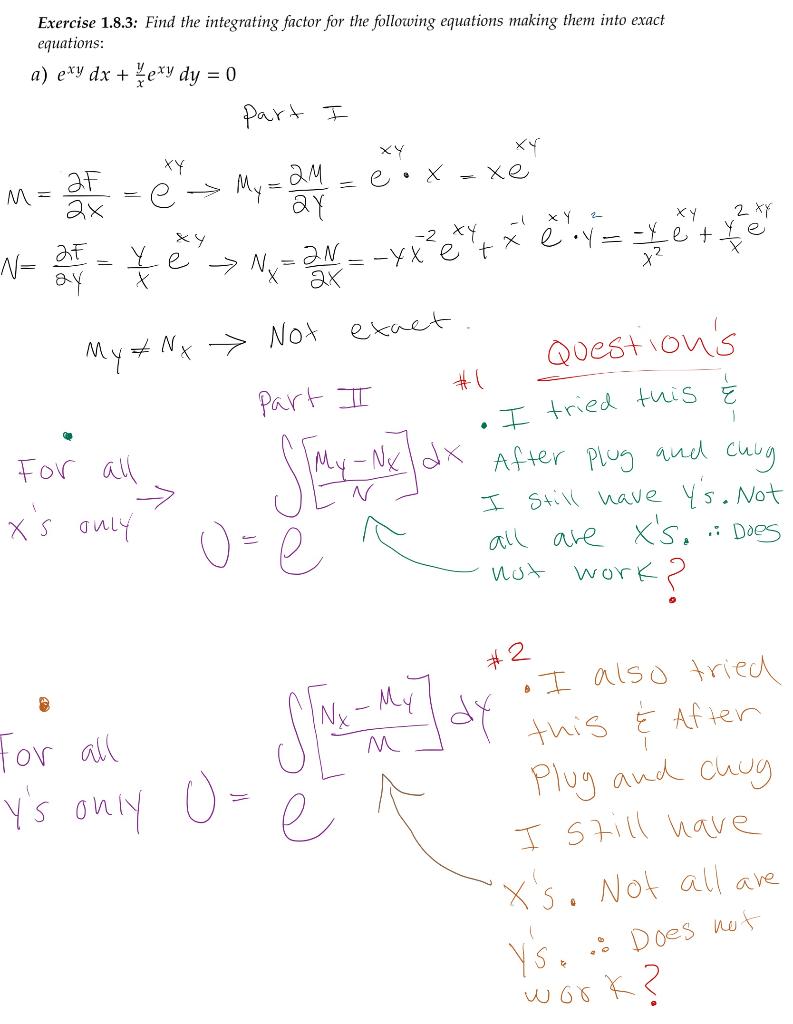 Exercise 1.8.3: Find the integrating factor for the following equations making them into exact
equations:
a) e^{xy} dx + \frac{y}{x}e^{xy} dy = 0
Part I
M = \frac{∂F}{∂x} = e^{xy} → M_y = \frac{∂M}{∂y} = e^{xy} · x = xe^{xy}
N = \frac{∂F}{∂y} = \frac{y}{x} e^{xy} → N_x = \frac{∂N}{∂x} = -yx^{-2}e^{xy} + x^{-1} e^{xy} · y^2 = \frac{-y}{x^2} e^{xy} + \frac{y^2}{x} e^{xy}
M_y ≠ N_x → Not exact.
Question's
Part II
For all
x's only →
U = e^{∫[\frac{M_y - N_x}{N}] dx}
#1
· I tried this &
After plug and chug
I still have y's. Not
all are x's. ∴ Does
not work?
For all
y's only
U = e^{∫[\frac{N_x - M_y}{M}] dy}
#2
· I also tried
this & After
Plug and chug
I still have
x's. Not all are
y's. ∴ Does not
work?